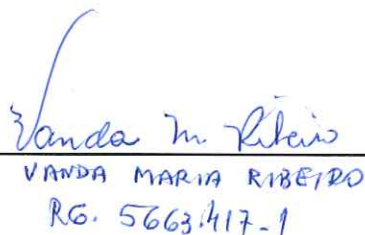 Vanda M. Ribeiro
VANDA MARIA RIBEIRO
RG. 5663.417-1